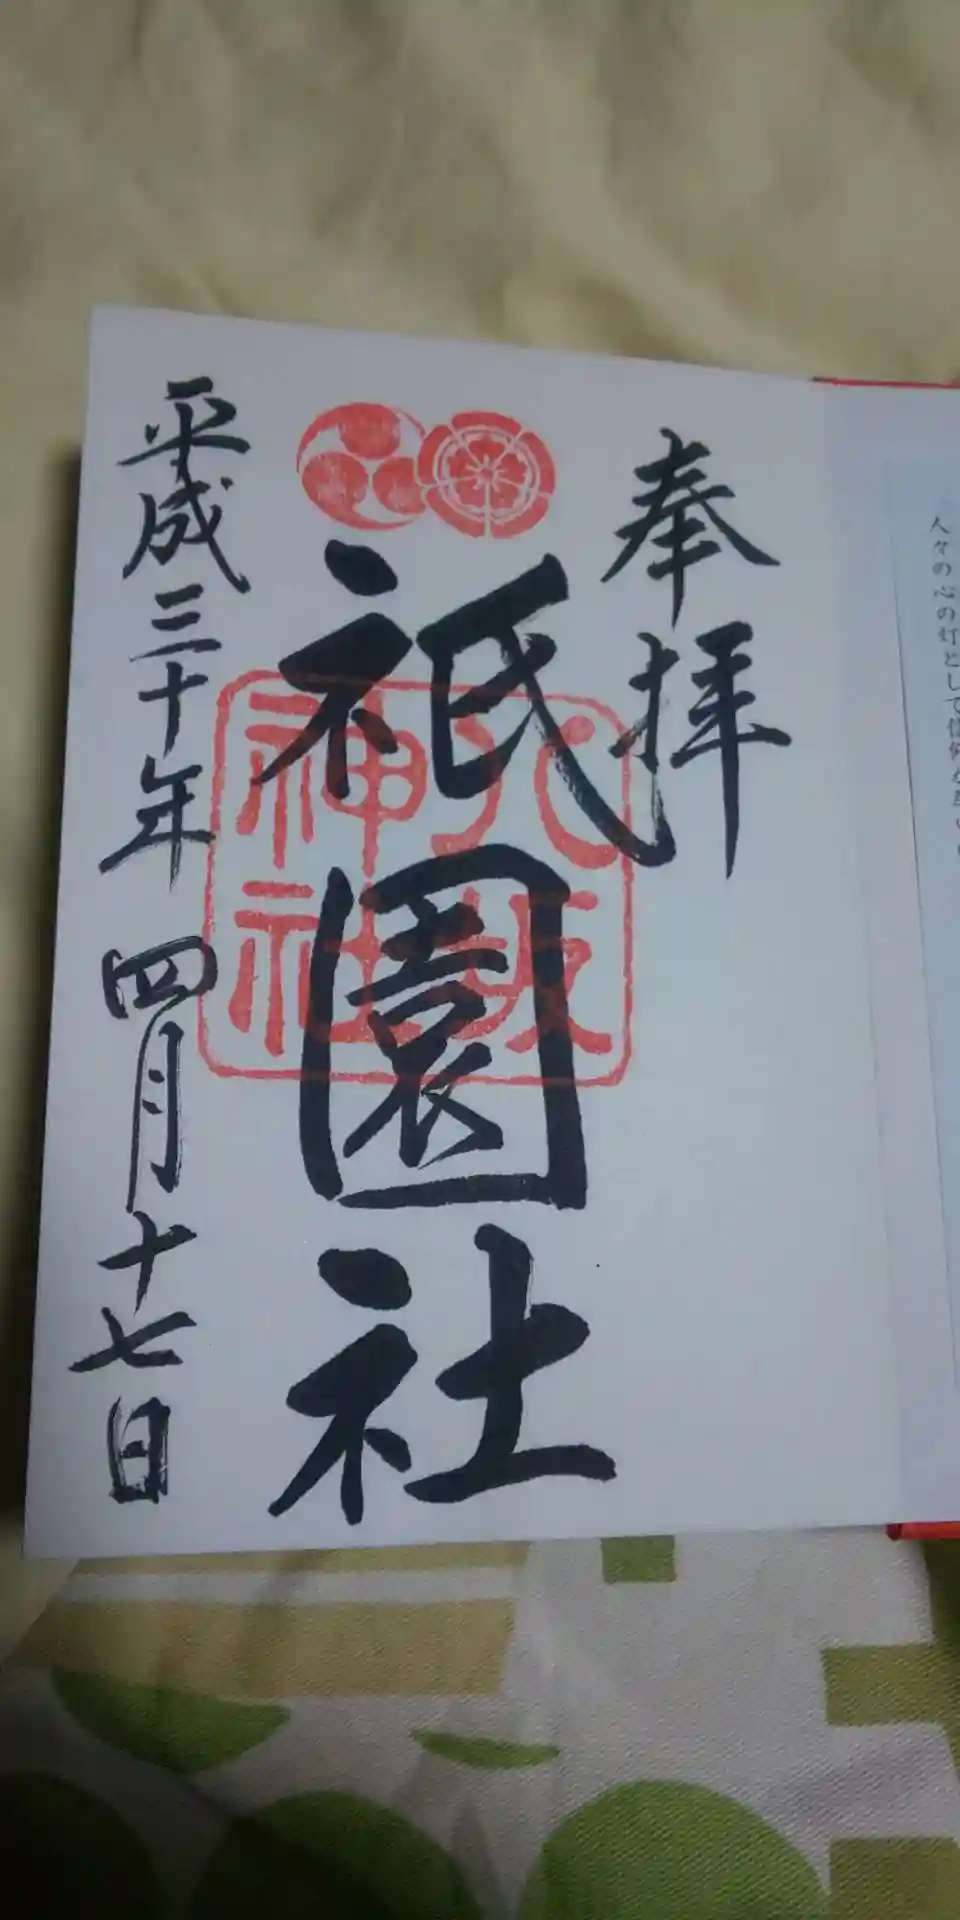 人々の心の灯として信仰
奉拝
祇園社
八坂
神社
平成三十年四月十七日